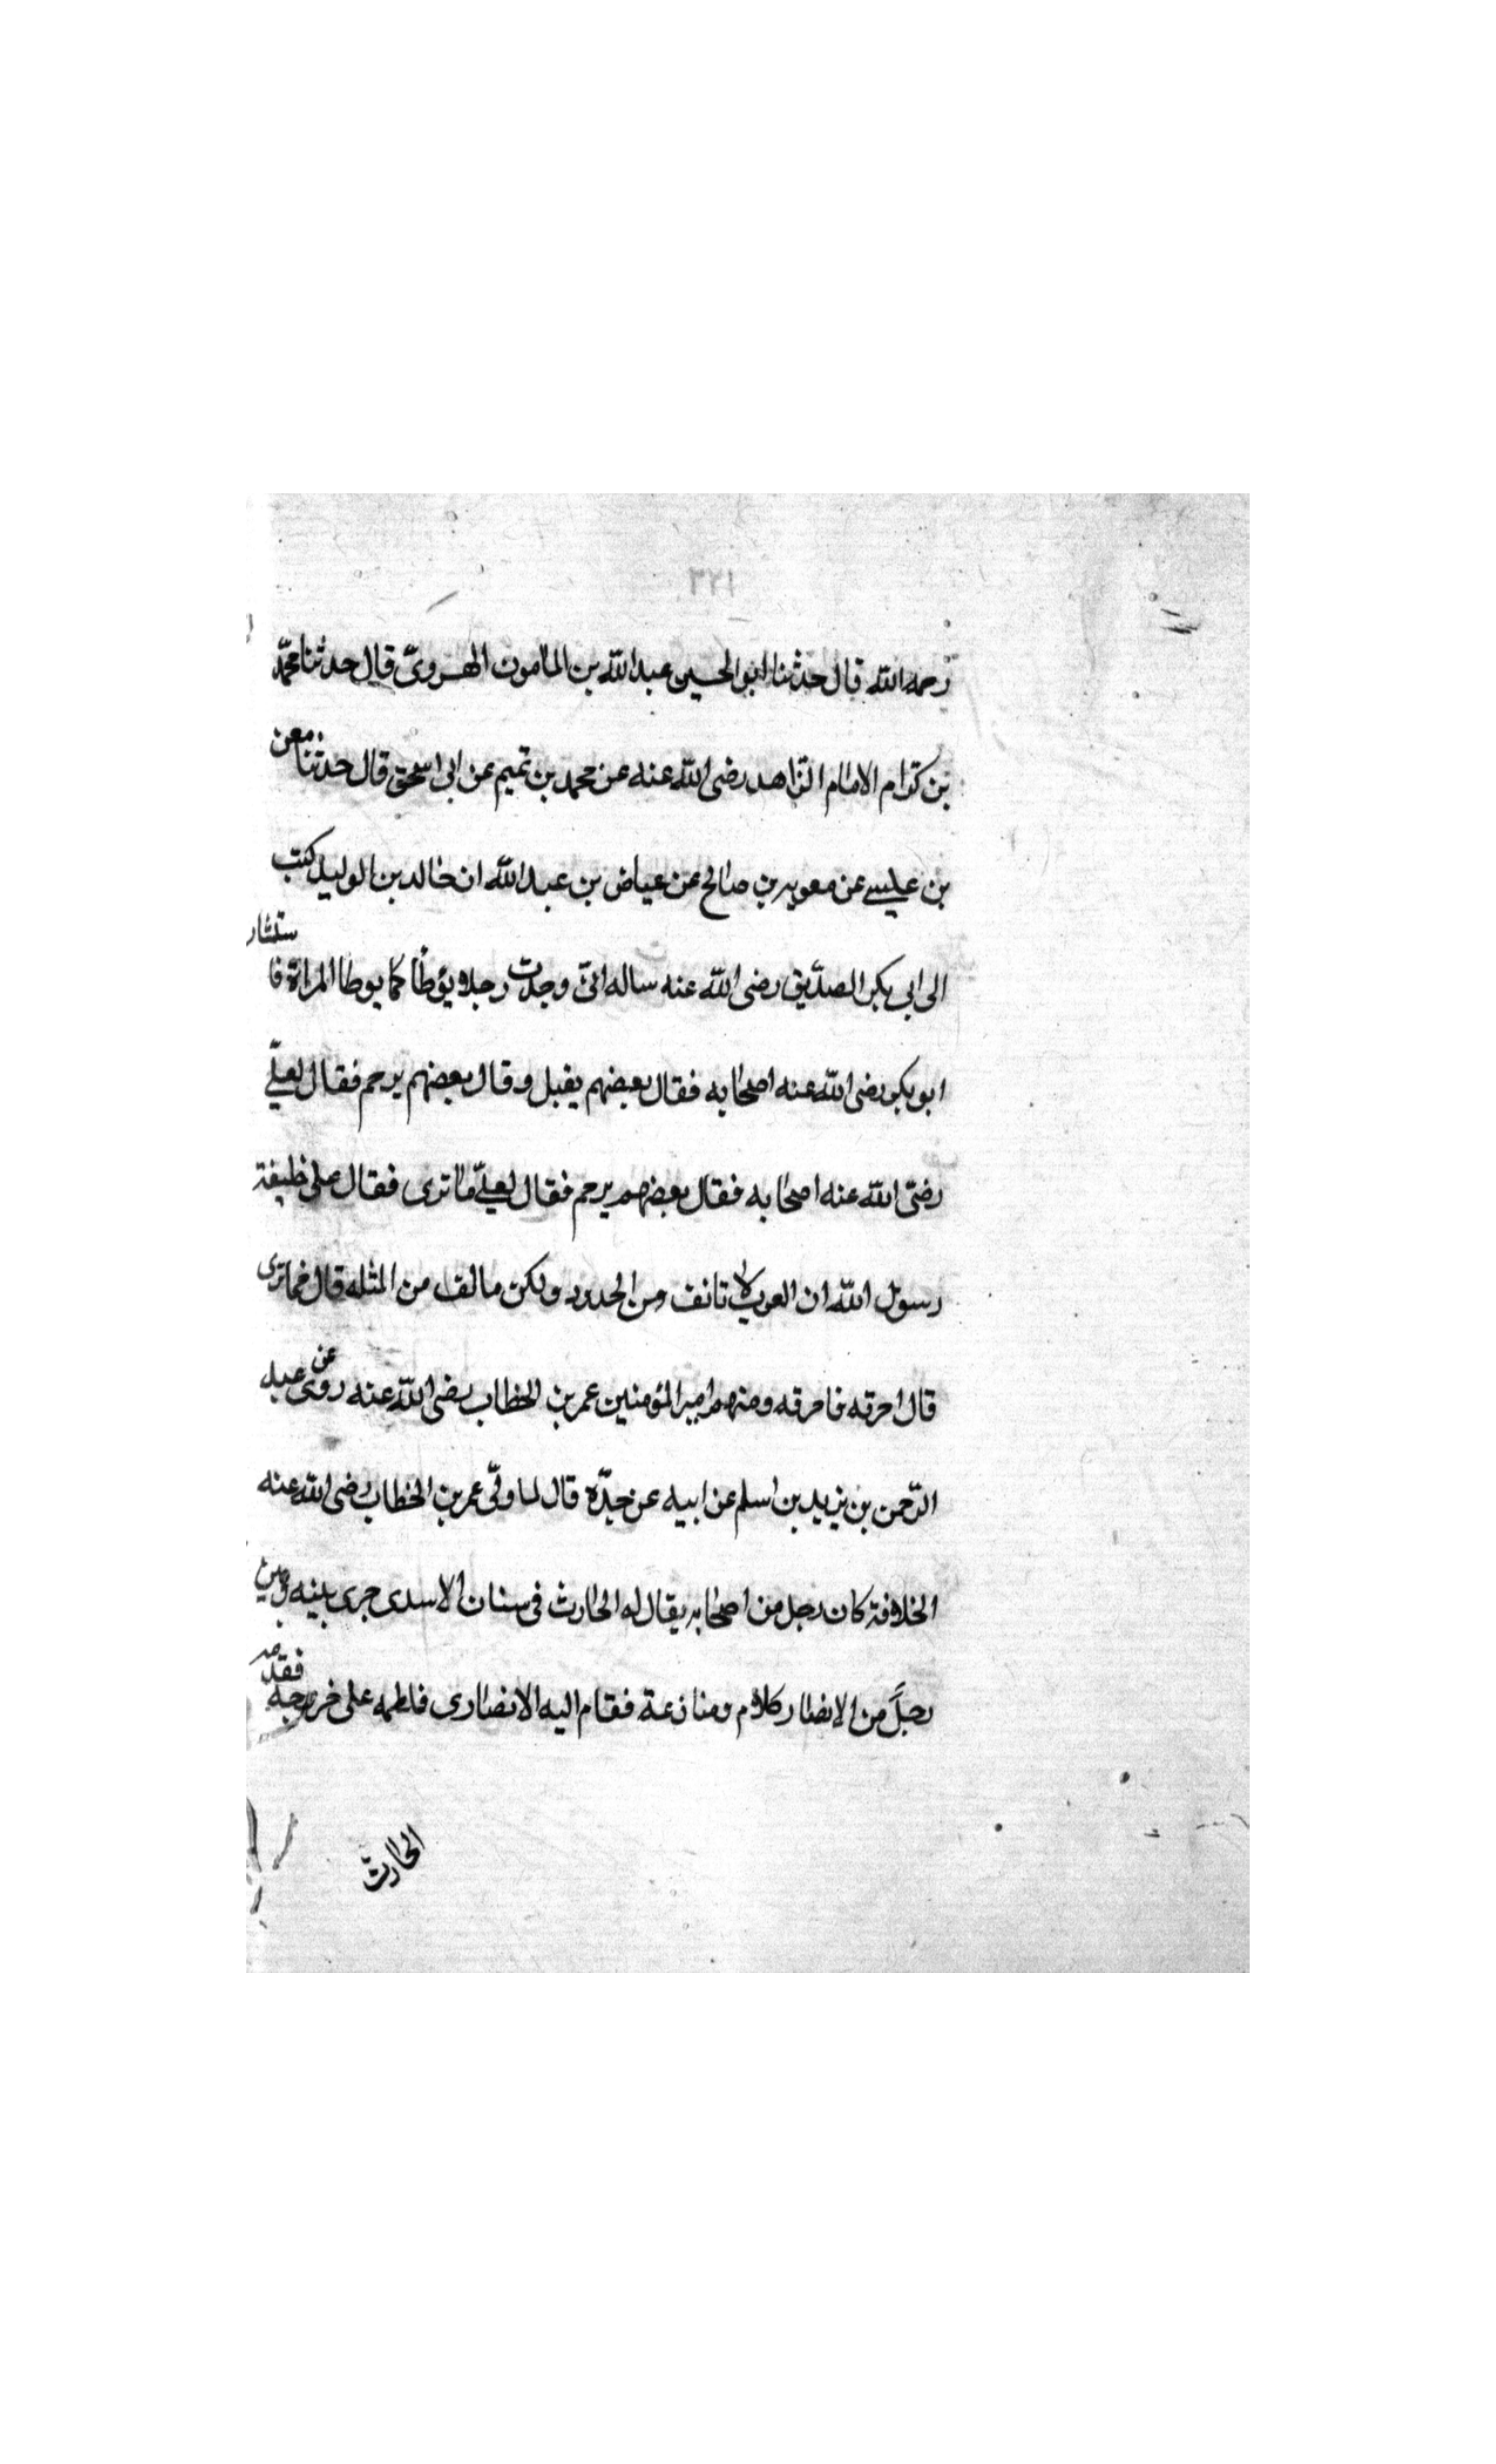 رحمه الله قال حدثنا ابو الحسين عبد الله بن المامون الهروىّ قال حدثنا محمّد
بن كرّام الامام الزّاهد رضى الله عنه عن محمد بن تميم عن ابى اسحق قال حدثنا معن
بن عيسے عن معويه بن صالح عن عياض بن عبد الله ان خالد بن الوليد كتب
الى ابى بكر الصدّيق رضى الله عنه ساله انّى وجدت رجلا يؤطأ كما يوطا المراة فا ستشار
ابو بكر رضى الله عنه اصحابه فقال بعضهم يقبل و قال بعضهم يرجم فقال لعلىّ
رضى الله عنه اصحابه فقال بعضهم يرجم فقال لعلىّ ما ترى فقال على خليفة
رسول الله ان العرب لا تانف من الحدود ولكن من المثله قال فما ترى
قال احرقه فاحرقه ومنهم امير المؤمنين عمر بن الخطاب رضى الله عنه روى عن عبد
الرّحمن بن يزيد بن اسلم عن ابيه عن جدّه قال لما ولّى عمر بن الخطاب رضى الله عنه
الخلافة كان رجل من اصحابه يقال له الحارث فى سنان الاسدى جرى بينه وبين
رجلً من الانصار كلام ومنازعة فقام اليه الانصارى فلطمه على وجهه فقدم
الحارث